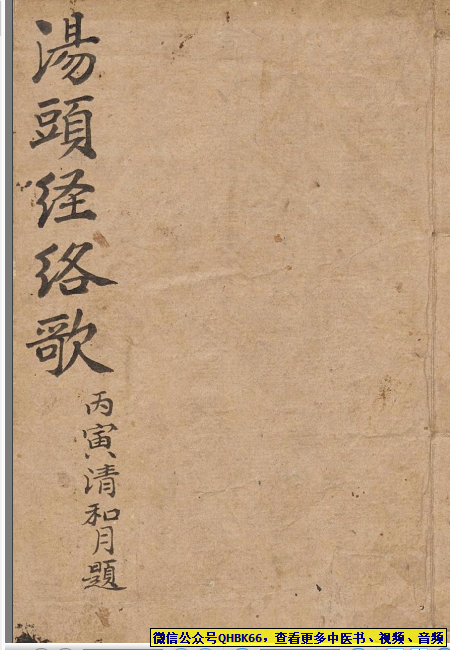 湯頭経絡歌
丙寅清和月題
微信公众号QHBK66，查看更多中医书、视频、音频